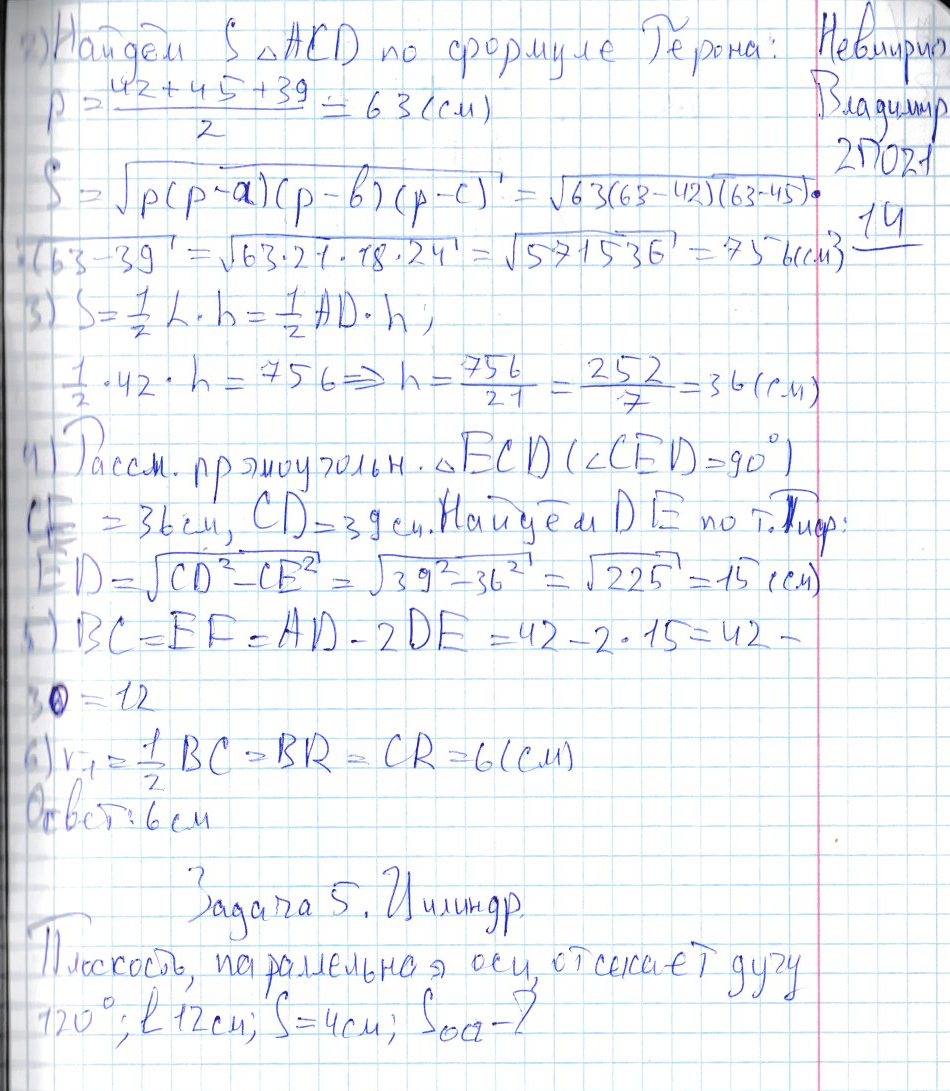 2) Найдём S △ACD по формуле Герона:
p = (42+45+39)/2 = 63 (см)
S = √p(p-a)(p-b)(p-c) = √63(63-42)(63-45)·
·(63-39 = √63·21·18·24 = √571536 = 756 (см²)
3) S = 1/2 h · h = 1/2 AD · h;
1/2 · 42 · h = 756 => h = 756/21 = 252/7 = 36 (см)
4) Рассм. прямоугольн. △ECD (∠CED = 90°)
CE = 36 см, CD = 39 см. Найдём DE по т. Пиф:
ED = √CD²-CE² = √39²-36² = √225 = 15 (см)
5) BC = EF = AD - 2DE = 42 - 2·15 = 42 -
30 = 12
6) r₁ = 1/2 BC = BR = CR = 6 (см)
Ответ: 6 см
Задача 5. Цилиндр.
Плоскость, параллельная оси, отсекает дугу
120°; l 12 см; S = 4 см; Sоа - ?
Владимир
2П021
14